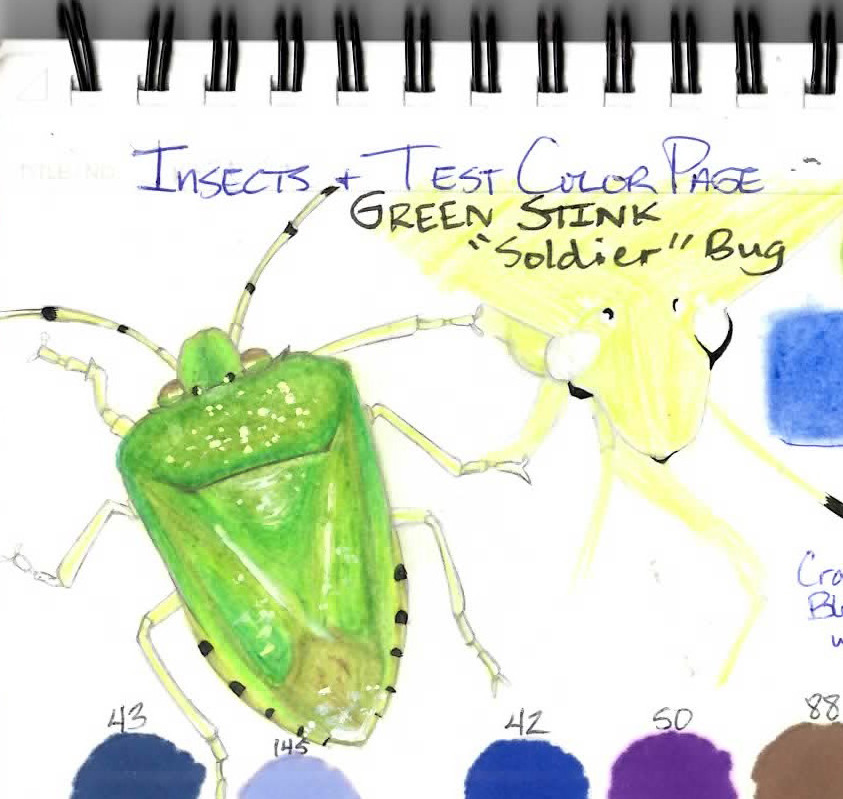 INSECTS + TEST COLOR PAGE
GREEN STINK
"Soldier" Bug
Cra
Bl
w
43
145
42
50
88